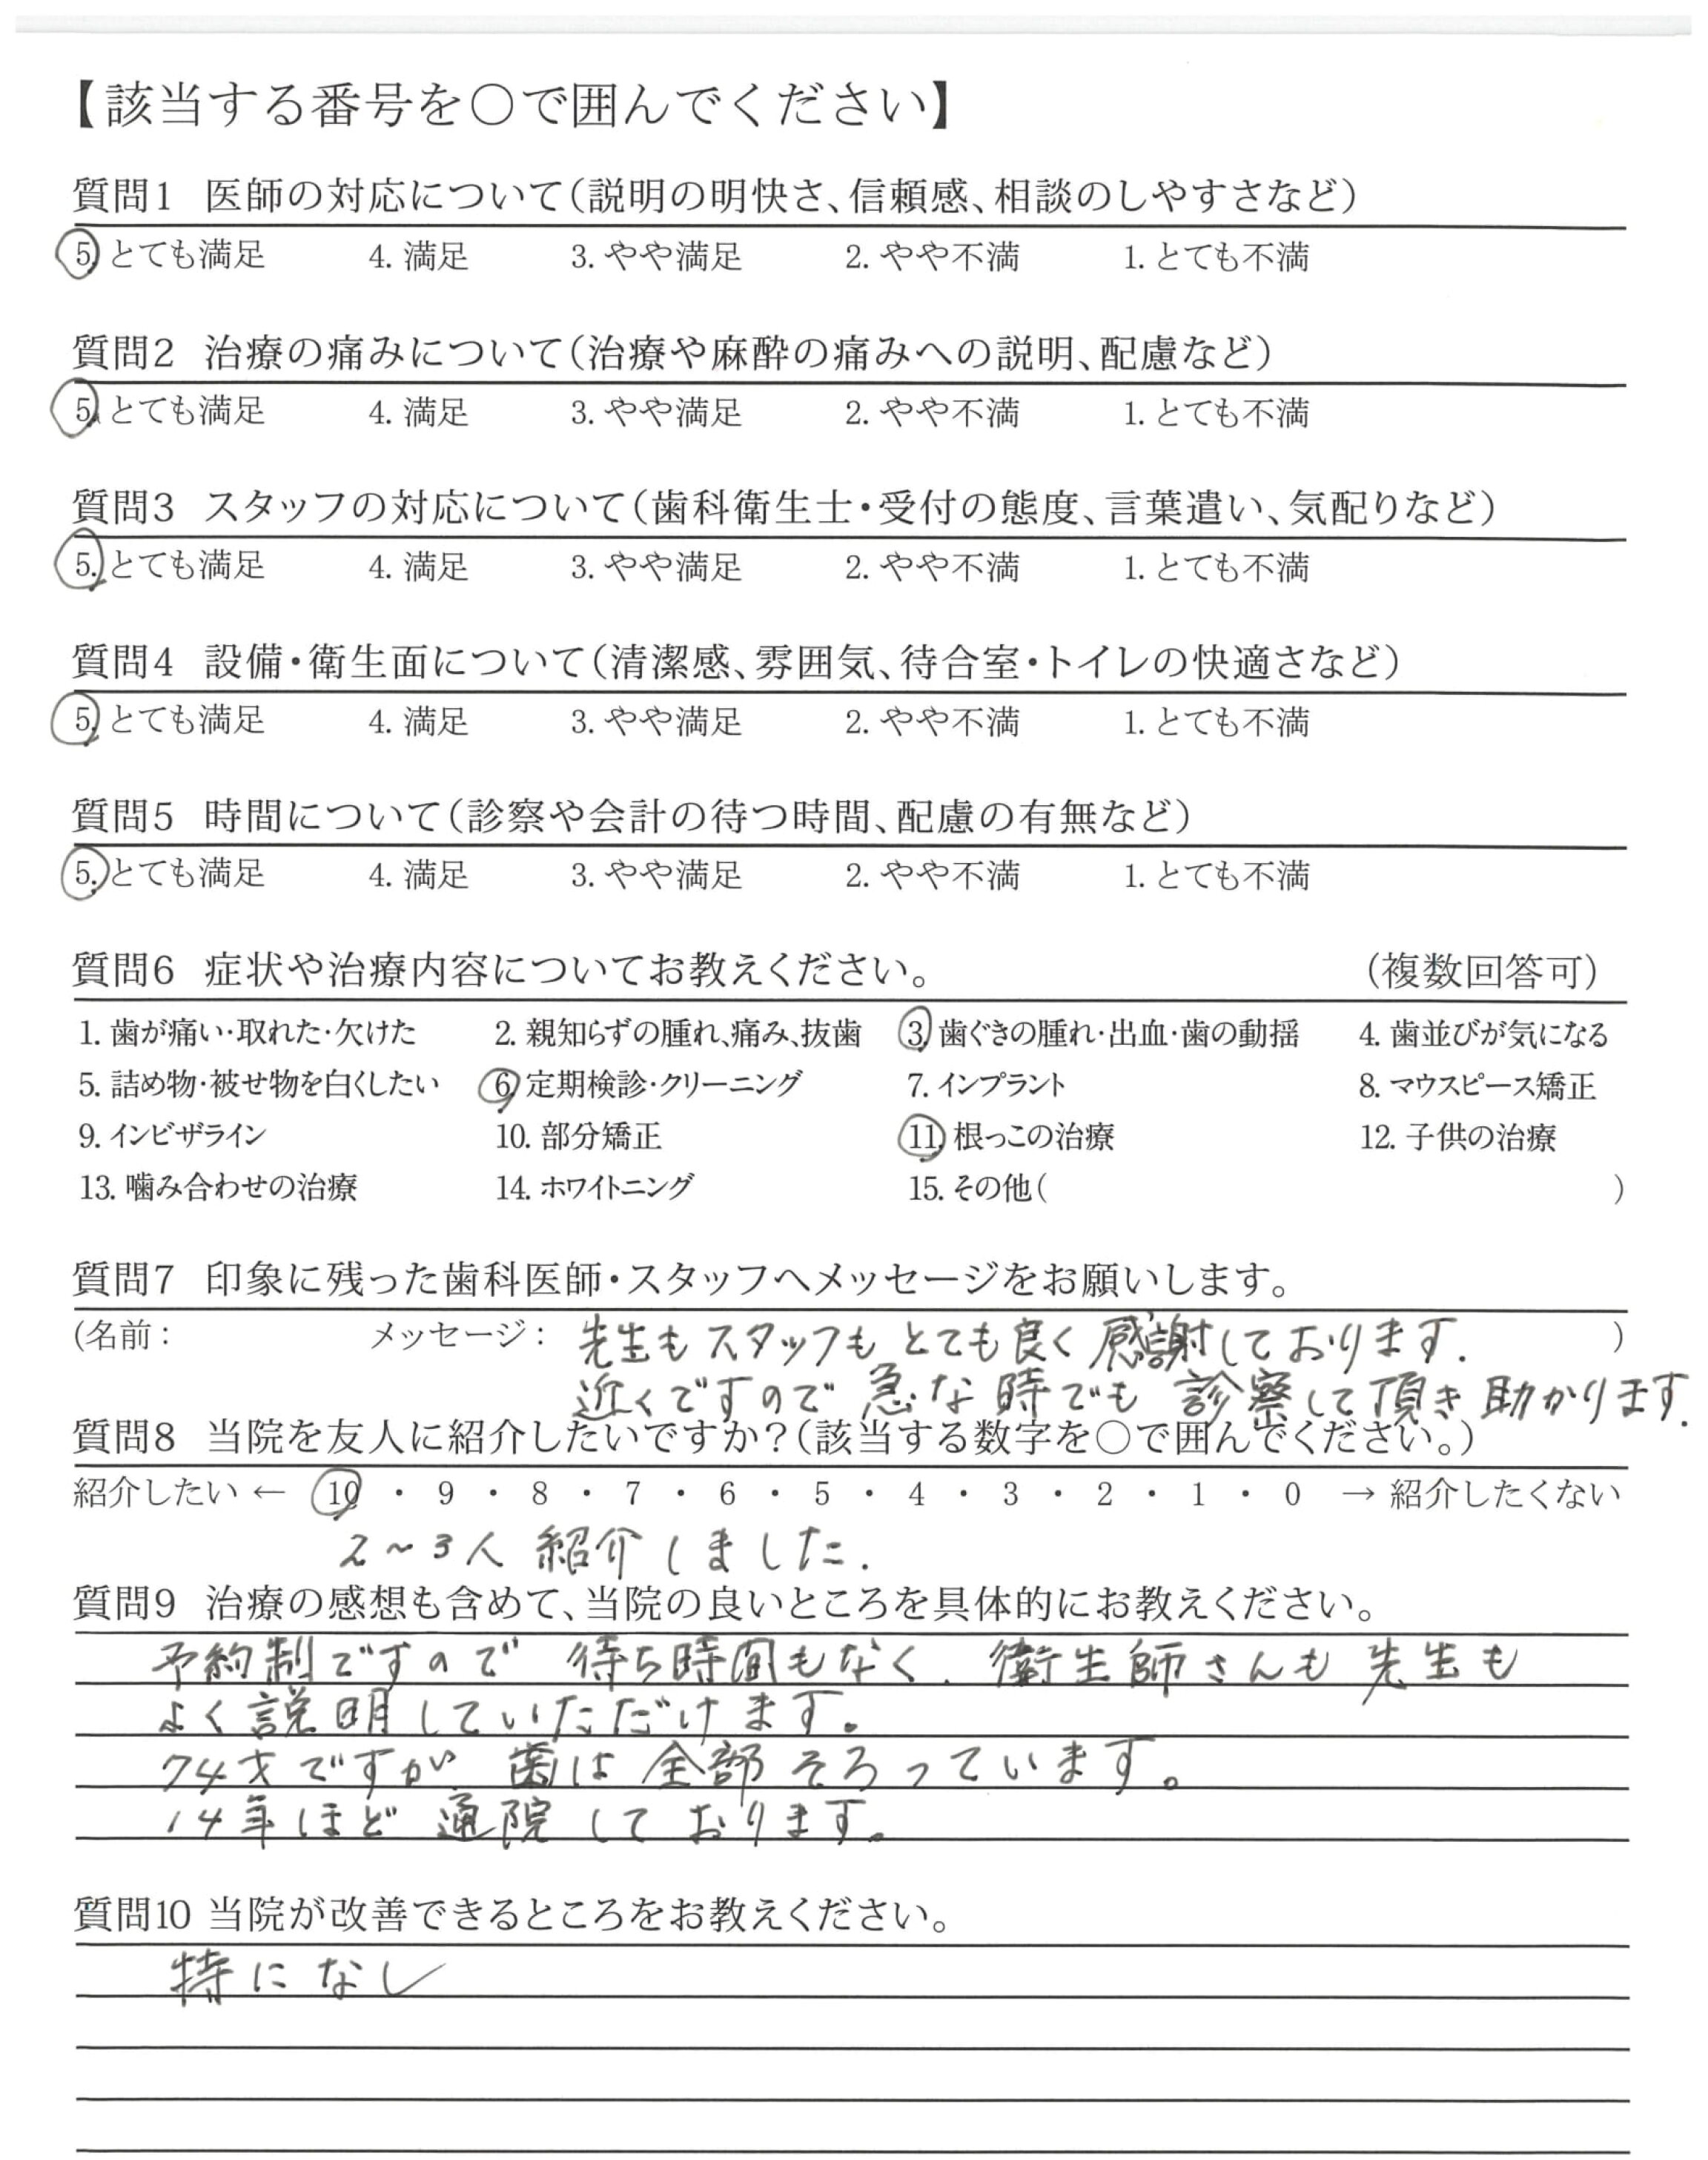 【該当する番号を○で囲んでください】
質問1 医師の対応について(説明の明快さ、信頼感、相談のしやすさなど)
5. とても満足 4. 満足 3. やや満足 2. やや不満 1. とても不満
質問2 治療の痛みについて(治療や麻酔の痛みへの説明、配慮など)
5. とても満足 4. 満足 3. やや満足 2. やや不満 1. とても不満
質問3 スタッフの対応について(歯科衛生士・受付の態度、言葉遣い、気配りなど)
5. とても満足 4. 満足 3. やや満足 2. やや不満 1. とても不満
質問4 設備・衛生面について(清潔感、雰囲気、待合室・トイレの快適さなど)
5. とても満足 4. 満足 3. やや満足 2. やや不満 1. とても不満
質問5 時間について(診察や会計の待つ時間、配慮の有無など)
5. とても満足 4. 満足 3. やや満足 2. やや不満 1. とても不満
質問6 症状や治療内容についてお教えください。 (複数回答可)
1. 歯が痛い・取れた・欠けた 2. 親知らずの腫れ、痛み、抜歯 3. 歯ぐきの腫れ・出血・歯の動揺 4. 歯並びが気になる
5. 詰め物・被せ物を白くしたい 6. 定期検診・クリーニング 7. インプラント 8. マウスピース矯正
9. インビザライン 10. 部分矯正 11. 根っこの治療 12. 子供の治療
13. 噛み合わせの治療 14. ホワイトニング 15. その他( )
質問7 印象に残った歯科医師・スタッフへメッセージをお願いします。
(名前: メッセージ: 先生もスタッフもとても良く感謝しております. )
近くですので急な時でも診察して頂き助かります.
質問8 当院を友人に紹介したいですか?(該当する数字を○で囲んでください。)
紹介したい ← 10 ・ 9 ・ 8 ・ 7 ・ 6 ・ 5 ・ 4 ・ 3 ・ 2 ・ 1 ・ 0 → 紹介したくない
2~3人 紹介しました.
質問9 治療の感想も含めて、当院の良いところを具体的にお教えください。
予約制ですので 待ち時間もなく. 衛生師さんも 先生も
よく説明していただけます。
74才ですが 歯は 全部そろっています。
14年ほど 通院しております。
質問10 当院が改善できるところをお教えください。
特になし